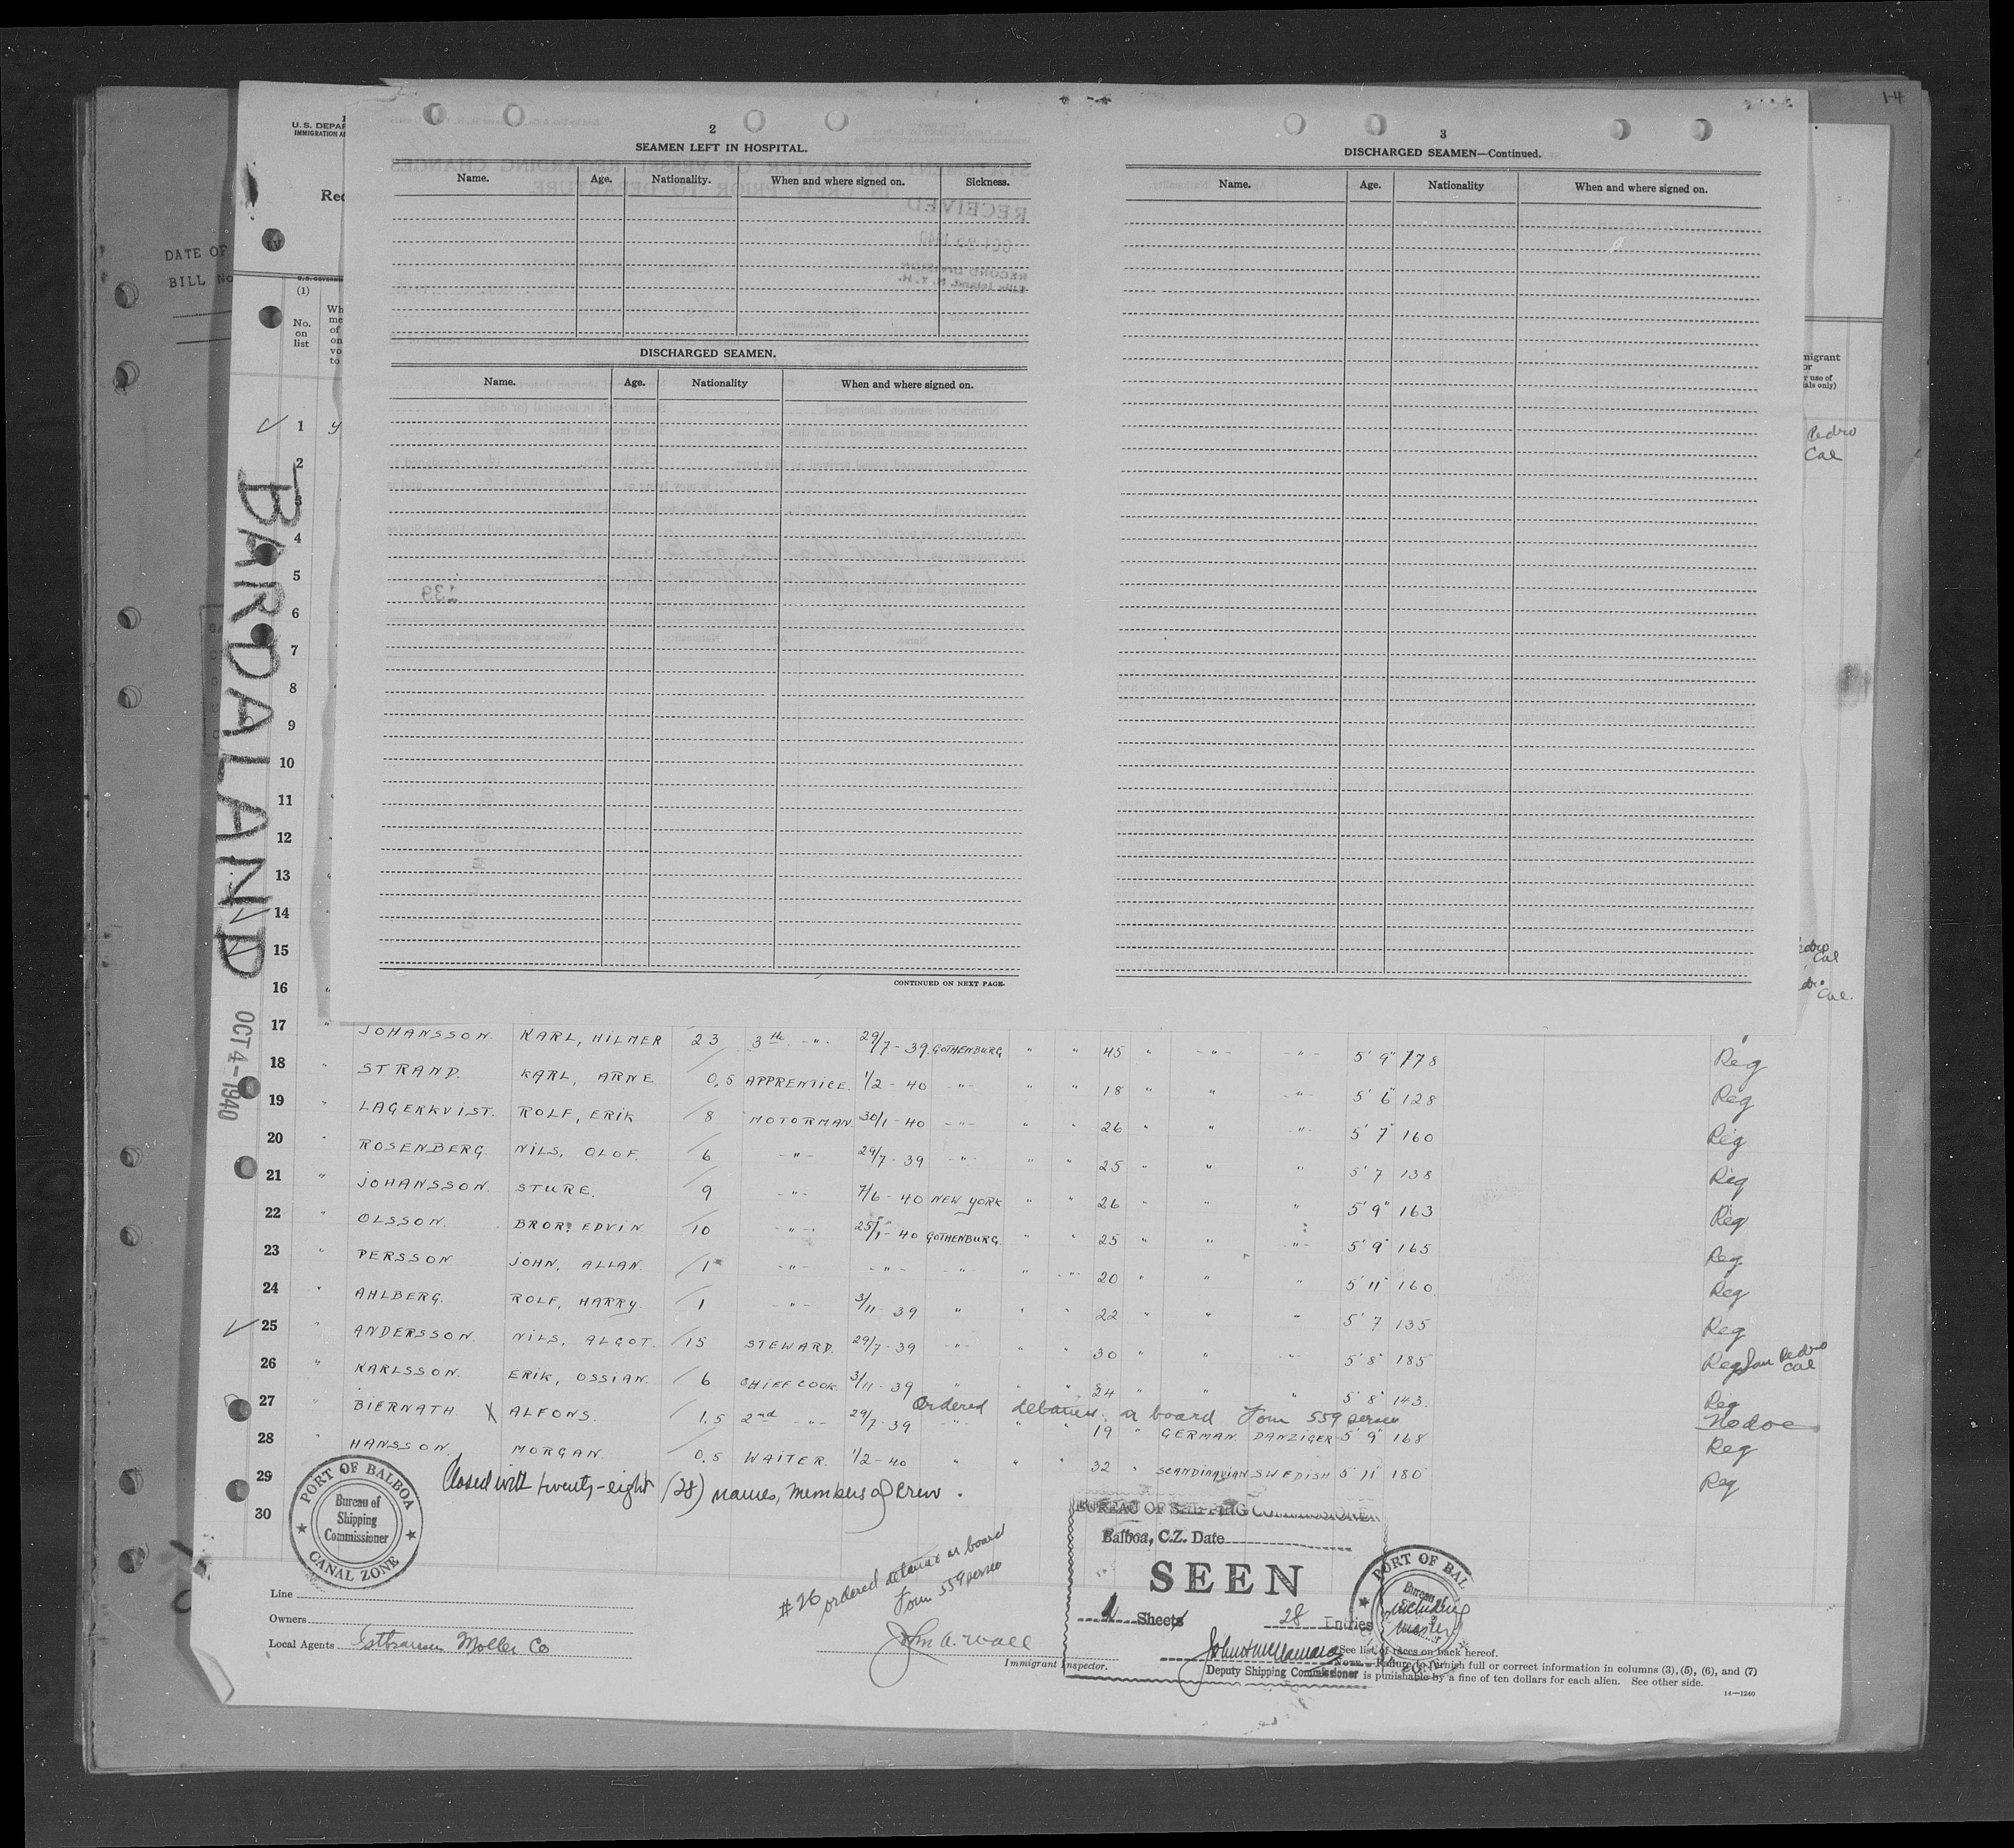 1-4
2
SEAMEN LEFT IN HOSPITAL.
Name. Age. Nationality. When and where signed on. Sickness.
DISCHARGED SEAMEN.
Name. Age. Nationality When and where signed on.
CONTINUED ON NEXT PAGE.
3
DISCHARGED SEAMEN—Continued.
Name. Age. Nationality When and where signed on.
DATE OF
BILL No
U.S. DEPAR
IMMIGRATION A
Rec
(1)
No.
on
list
Wh
me
of
on
vo
to
migrant
or
r use of
als only)
Pedro
Cal
edro
Cal
dro
Cal.
BARDALAND
OCT 4-1940
1 y
2
3
4
5
6
7
8
9
10
11
12
13
14
15
16
17 JOHANSSON. KARL, HILMER 23 3rd -"- 29/7-39. GOTHENBURG " " 45 " -"- -"- 5' 9" 178 Reg
18 " STRAND. KARL, ARNE 0,5 APPRENTICE. 1/2-40 -"- " " 18 " " -"- 5' 6" 128 Reg
19 " LAGERKVIST. ROLF, ERIK 8 MOTORMAN. 30/1-40 -"- " " 26 " " -"- 5' 7" 160 Reg
20 " ROSENBERG. NILS, OLOF. 6 -"- 29/7-39 -"- " " 25 " " " 5' 7 138 Reg
21 " JOHANSSON. STURE. 9 -"- 7/6-40 NEW YORK " " 26 " " " 5' 9" 163 Reg
22 " OLSSON. BROR, EDVIN 10 -"- 25/1-40 GOTHENBURG. " " 25 " " -"- 5' 9" 165 Reg
23 " PERSSON JOHN, ALLAN. 1 -"- -"- -"- " -"- 20 " " " 5' 11" 160. Reg
24 " AHLBERG. ROLF, HARRY. 1 -"- 3/11-39 " " " 22 " " " 5' 7 135 Reg
25 " ANDERSSON. NILS, ALGOT. 15 STEWARD. 29/7-39 -"- " " 30 " " -"- 5' 8" 185 Reg San Pedro Cal
26 " KARLSSON. ERIK, OSSIAN. 6 CHIEF COOK. 3/11-39 " " " 24 " " " 5' 8" 143. Reg
Ordered detained on board Form 559 served
27 " BIERNATH X ALFONS. 1,5 2nd -"- 29/7-39 -"- " " 19 " GERMAN DANZIGER 5' 9" 168 Reg
28 " HANSSON. MORGAN. 0,5 WAITER. 1/2-40 " " " 32 " SCANDINAVIAN SWEDISH 5' 11" 180 Reg
29
30
Closed with twenty-eight (28) names, members of Crew.
PORT OF BALBOA
Bureau of
Shipping
Commissioner
CANAL ZONE
#26 ordered detained on board
Form 559 served
John A. Wall
Immigrant Inspector.
Line
Owners
Local Agents
Moller Co
BUREAU OF SHIPPING COMMISSIONER
Balboa, C.Z. Date
SEEN
1 Sheets 28 Entries
including
master
PORT OF BAL
Bureau of
Deputy Shipping Commissioner
See list of races on back hereof.
NOTE.—Failure to furnish full or correct information in columns (3), (5), (6), and (7)
is punishable by a fine of ten dollars for each alien. See other side.
14—1240